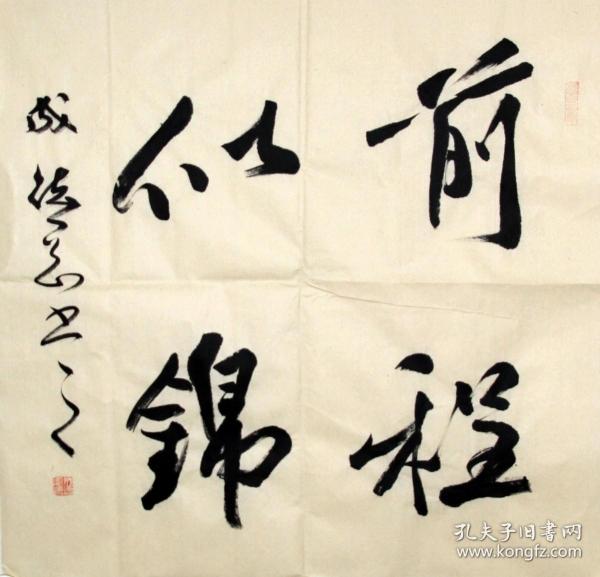 前程
似錦
成
书之
孔夫子旧書网
www.kongfz.com